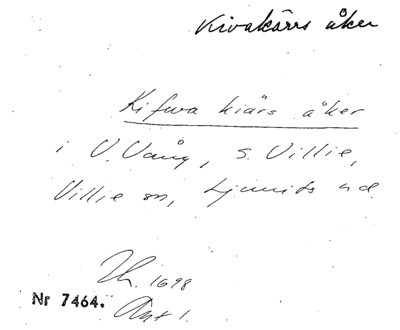 Kivakärrs åker
Kifwa kiärs åker
i V. Vång, S. Villie,
Villie sn, Ljunits hd
Lh. 1698
Nr 7464. Akt 1.